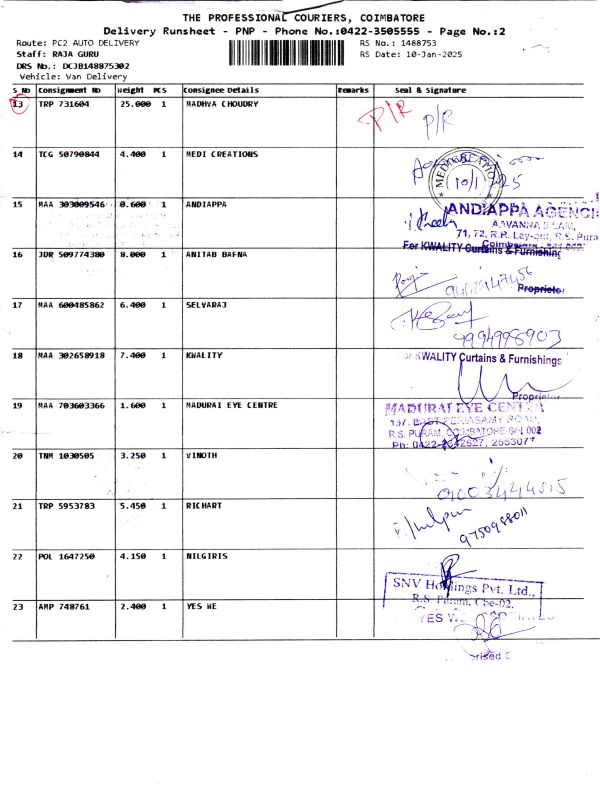 THE PROFESSIONAL COURIERS, COIMBATORE
Delivery Runsheet - PNP - Phone No.:0422-3505555 - Page No.:2
Route: PC2 AUTO DELIVERY
RS No.: 1488753
Staff: RAJA GURU
RS Date: 10-Jan-2025
DRS No.: DCJB148875302
Vehicle: Van Delivery
S No Consignment No Weight PCS Consignee Details Remarks Seal & Signature
13 TRP 731604 25.000 1 MADHVA CHOUDRY P/R P/R
14 TCG 50790844 4.400 1 MEDI CREATIONS
10/1
15 MAA 303009546 0.600 1 ANDIAPPA
ANDIAPPA AGENCI
71, 72, R.P. Lay-out, R.S. Pura
For KWALITY Curtains & Furnishing
16 JDR 509774380 8.000 1 ANITAB BAFNA
Proprietor
17 MAA 600485862 6.400 1 SELVARAJ
9994998903
18 MAA 302658918 7.400 1 KWALITY
or KWALITY Curtains & Furnishings
Proprietor
19 MAA 703603366 1.600 1 MADURAI EYE CENTRE
MADURAI EYE CENT
137, EAST PERIASAMY ROAD,
R.S. PURAM, COIMBATORE 641 002
Ph: 0422-2542527, 255307
20 TNM 1030505 3.250 1 VINOTH
21 TRP 5953783 5.450 1 RICHART
9750988011
22 POL 1647250 4.150 1 NILGIRIS
SNV Holdings Pvt. Ltd.,
R.S. Puram, Cbe-02.
23 AMP 748761 2.400 1 YES WE
YES
rised